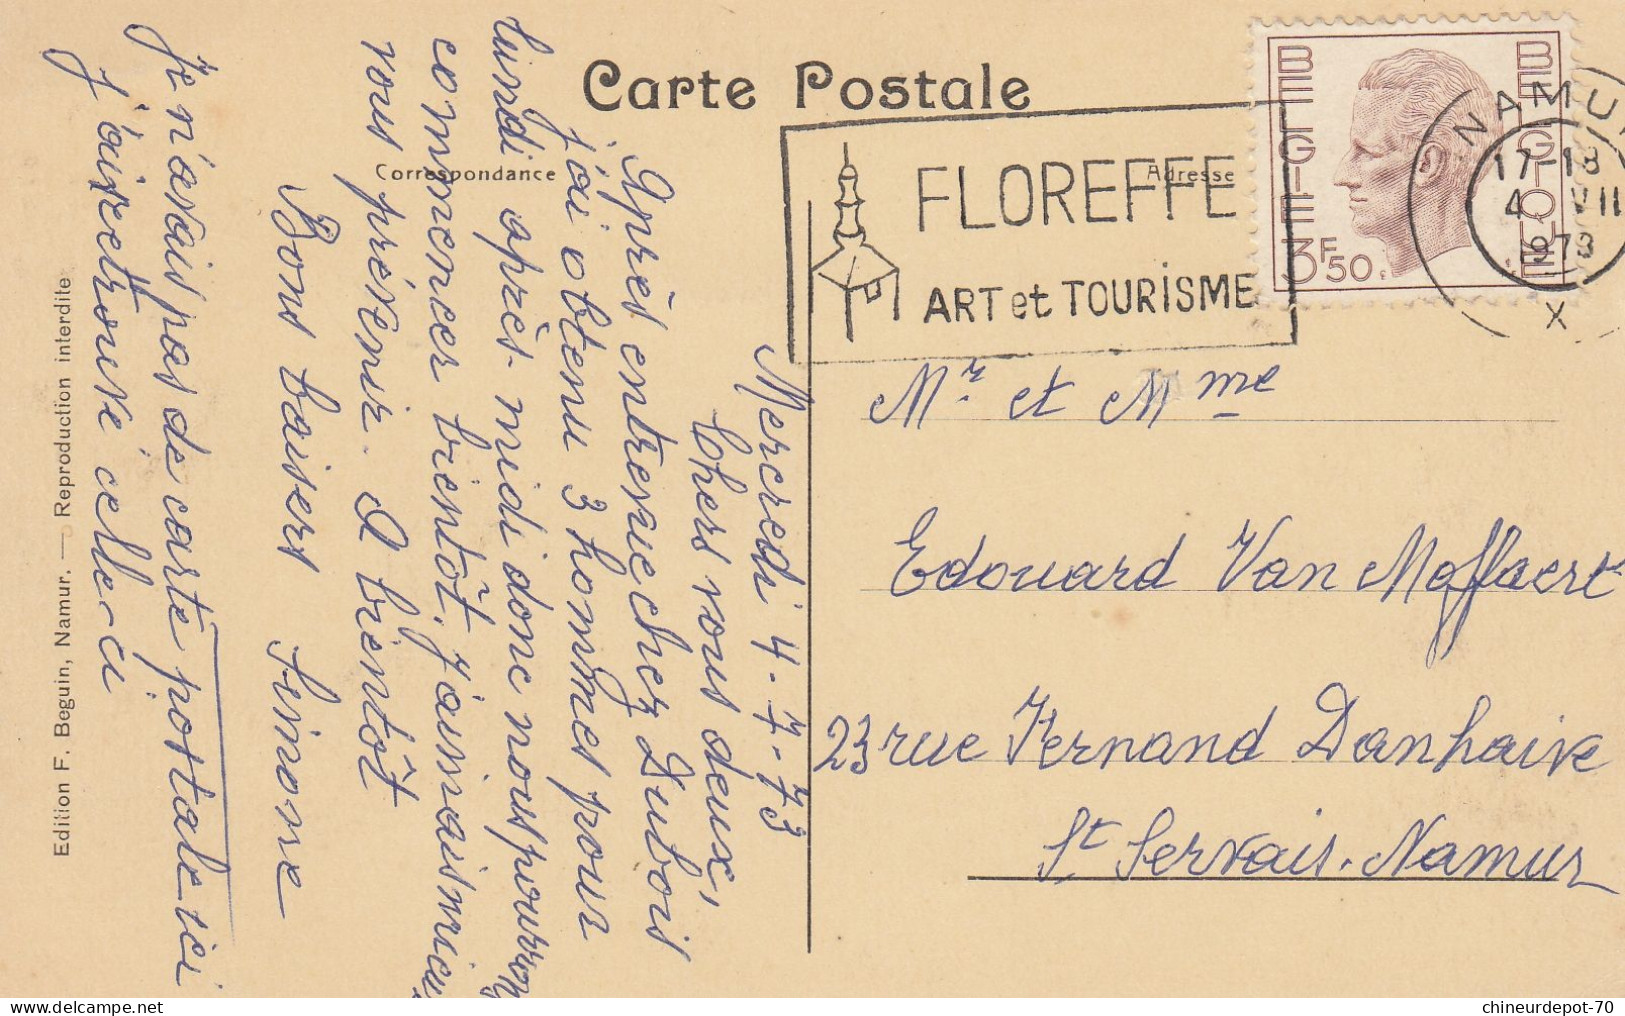 Carte Postale
Correspondance
Adresse
FLOREFFE
ART et TOURISME
BELGIE
BELGIQUE
3F50
NAMUR
17-18
4 VII
1973
X
Mercredi 4-7-73
Chers vous deux,
Après entrevue chez Dubois
j'ai obtenu 3 hommes pour
lundi après-midi donc nous pourrons
commencer bientôt. J'aimais mieux
vous prévenir. A bientôt
Bons baisers Simone
Je n'avais pas de carte postale ici
j'ai retrouvé celle-ci
Mr et Mme
Edouard Van Moffaert
23 rue Fernand Danhaive
St Servais-Namur
Edition F. Beguin, Namur. — Reproduction interdite
chineurdepot-70